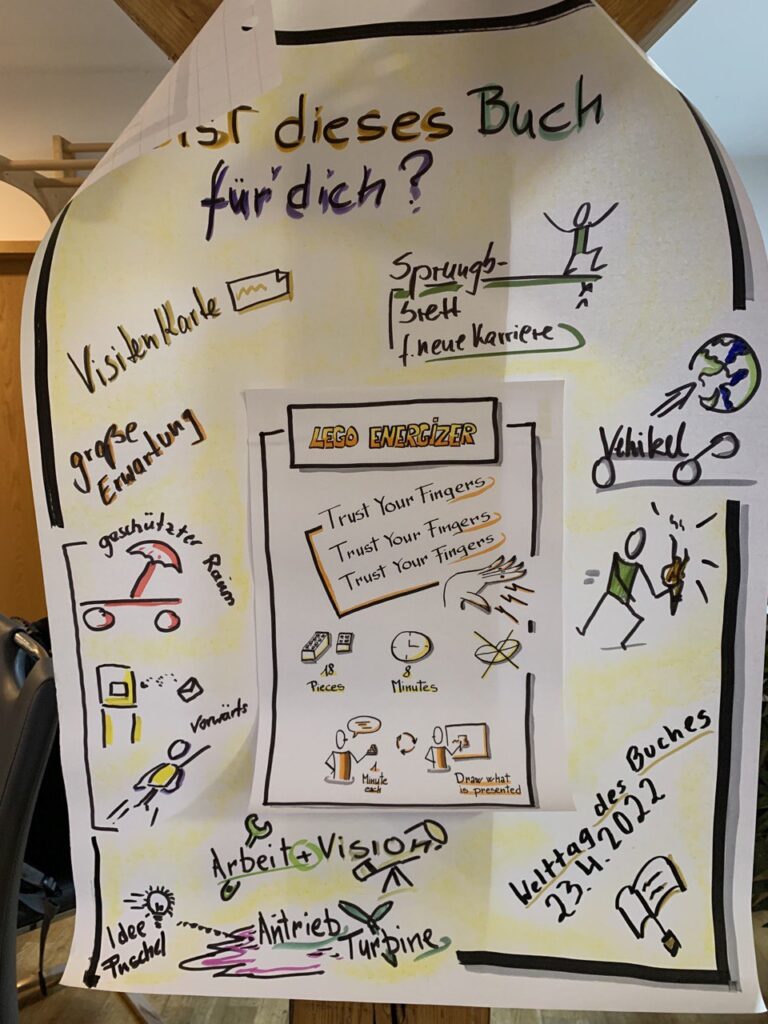 ist dieses Buch
für dich?
Visitenkarte
Sprungb-
brett
f. neue Karriere
große
Erwartung
Vehikel
geschützter Raum
vorwärts
LEGO ENERGIZER
Trust Your Fingers
Trust Your Fingers
Trust Your Fingers
18
Pieces
8
Minutes
1
Minute
each
Draw what
is presented
Arbeit + Vision
Idee
Puschel
Antrieb
Turbine
Welttag des Buches
23.4.2022